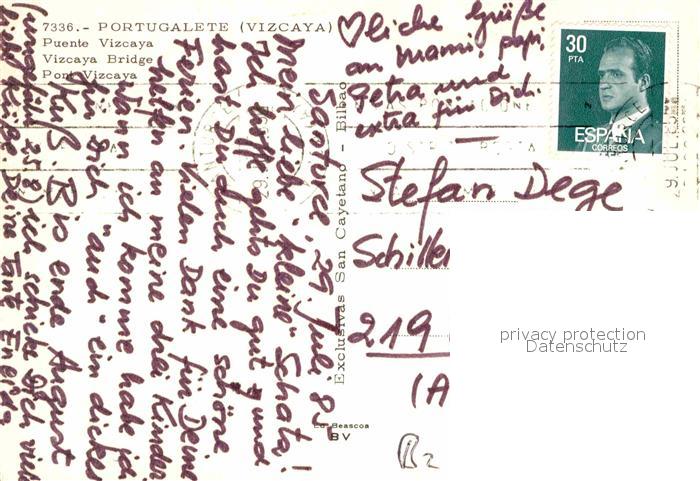 7336.- PORTUGALETE (VIZCAYA)
Puente Vizcaya
Vizcaya Bridge
Pont Vizcaya
♡liche Grüße
an Mami, Papi
Petra und
extra für Dich.
30
PTA
ESPAÑA
CORREOS
Santurce, 29 Juli 85
Mein liebe "kleine" Schatz!
Ich hoffe gehts Du gut und
hast Du auch eine schöne
Ferien. Vielen Dank für Deine
helfen an meine drei Kinder
Wenn ich komme hab ja
für Dich "auch" ein dickes
Kuß Bis ende August
(ungefähr 25 8) ich schicke Dich viel
Deine Tante Eneida
Exclusivas San Cayetano - Bilbao
Stefan Dege
Schiller
219
(A
Ed. Beascoa
BV
B2
privacy protection
Datenschutz